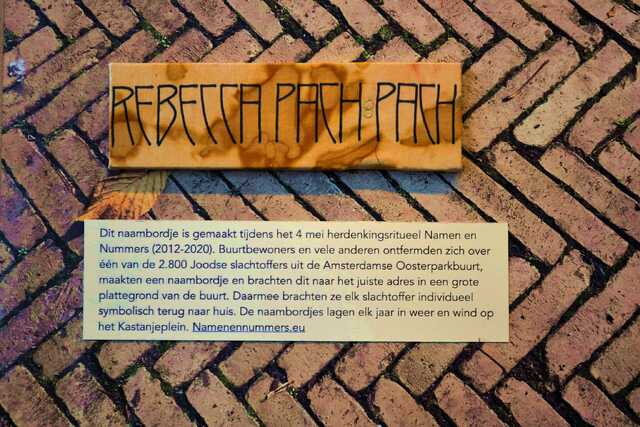 REBECCA PACH PACH
Dit naambordje is gemaakt tijdens het 4 mei herdenkingsritueel Namen en
Nummers (2012-2020). Buurtbewoners en vele anderen ontfermden zich over
één van de 2.800 Joodse slachtoffers uit de Amsterdamse Oosterparkbuurt,
maakten een naambordje en brachten dit naar het juiste adres in een grote
plattegrond van de buurt. Daarmee brachten ze elk slachtoffer individueel
symbolisch terug naar huis. De naambordjes lagen elk jaar in weer en wind op
het Kastanjeplein. Namenennummers.eu